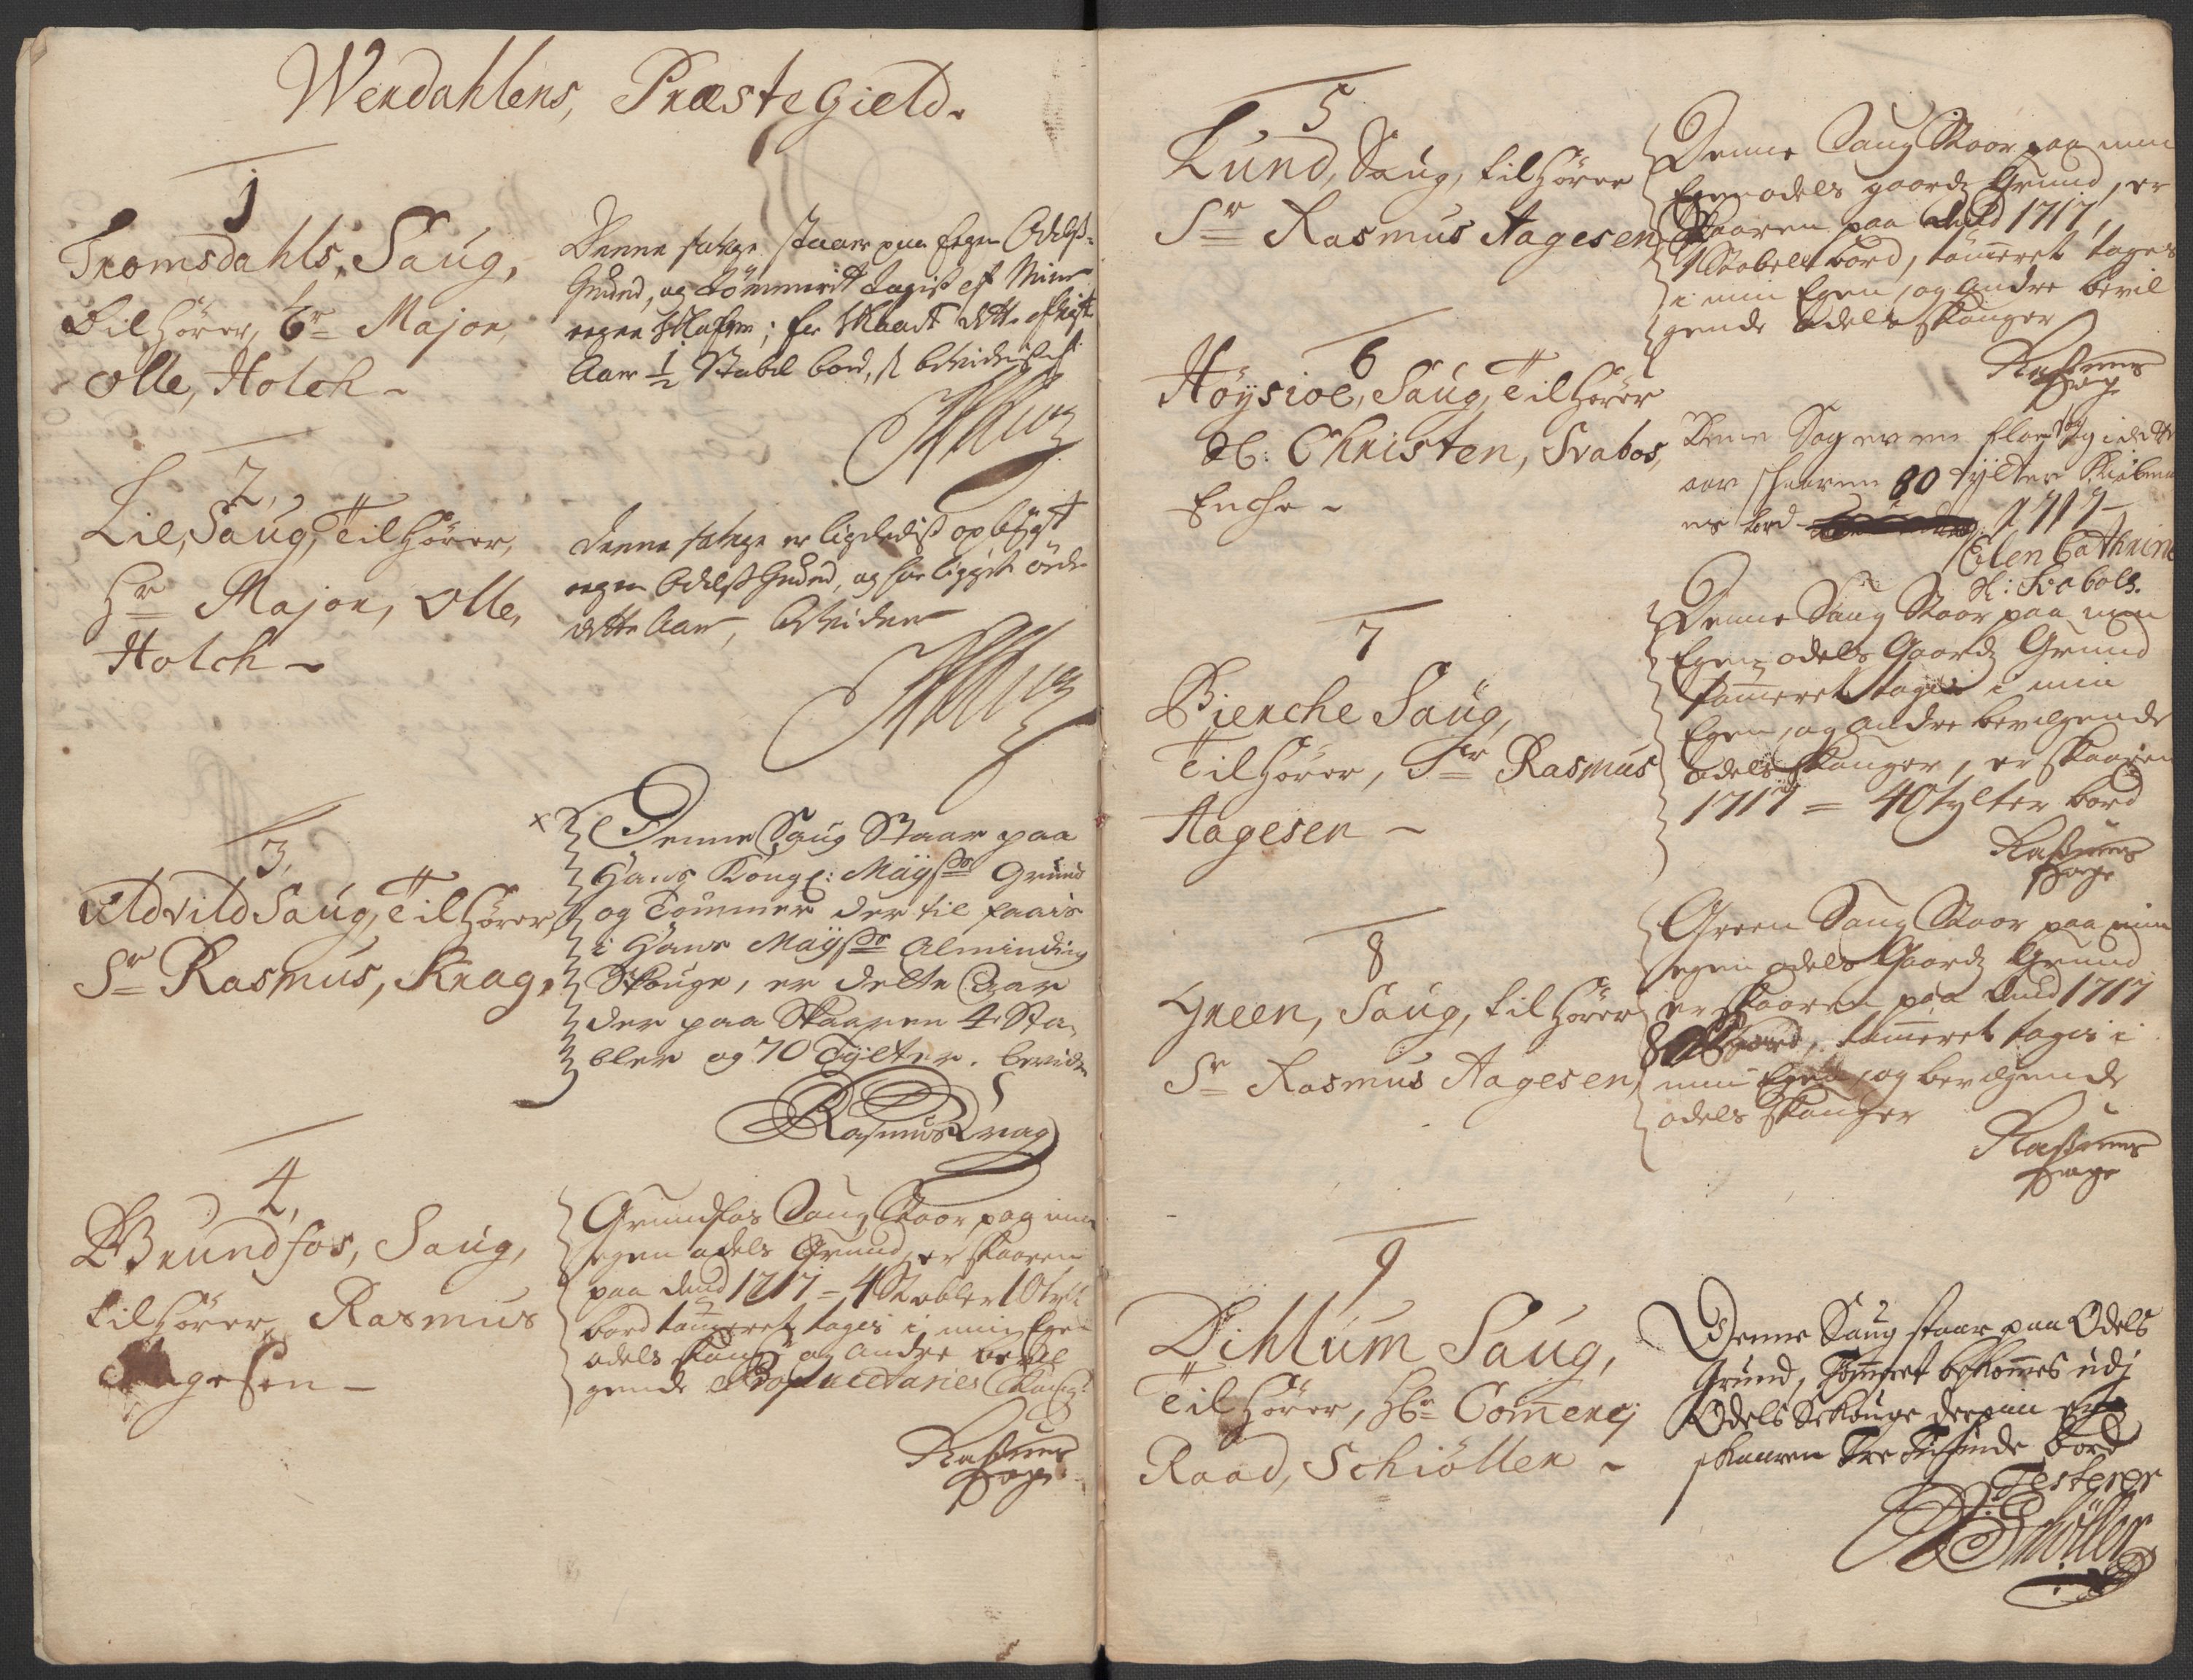 Werdahlens, Præstegield.
1
Tromsdahls, Saug,
Tilhører, Hr Major,
Olle, Holch -
Denne sauge staaer paa Eegen Odelß
Grund, og Tömmerit tagis af Min
eegen Skofve; har skaaret dette
Aar ½ Stabel bord,
2,
Lil, Saug, Tilhører,
Hr Major, Olle,
Holch -
Denne sauge er ligeledis opbÿgt
eegen Odelß Grund, og har ligget öde
dette Aar,
3,
Uldvild Saug, Tilhører,
Sr Rasmus, Krag,
x Denne Saug Staar paa
Hans Kongl: Maÿstr Grund
og Tommer der til faais
i Hans Maÿstr Alminding
Skouge, er dette Aar
der paa Skaaren 4 Sta,
bler og 70 Tÿlter. bevidn
Rasmus Krag
4,
Grundfos, Saug,
tilhører, Rasmus
Aagesen -
Grundfos Saug Staar, paa min
egen odels Grund, er skaaren
paa dend 1717 = 4 Stabler 10 tylt
bord tømeret tages i min Egen
odels skoug og andre bevil
gende Propriætaries Skoug:
Rasmus
Aage
5
Lund, Saug, tilhører
Sr Rasmus Aagesen
Denne Saug Staar paa min
Egen odels gaards Grund, er
Skaaren paa dend 1717,
1 Stabel bord, tømeret tages
i min Egen, og andre bevil
gende odels skouger
Rasmus
Aage
6
Höÿsioe, Saug, Tilhører
Sl: Christen, Svabos,
Enche -
Denne Sag er en flom Sag i dette
aar skaaren 80 tÿlter
er bord 1717 -
Elen Cathrine
Sl: Svaboes.
7
Bierche Saug,
Tilhører, Sr Rasmus
Aagesen -
Denne Saug Staar paa min
Egen odels Gaards Grund
tømeret tages i min
Egen, og andre bevilgende
odels skouger, er skaaren
1717 = 40 tylter bord
Rasmus
Aage
8
Green, Saug, tilhører
Sr Rasmus Aagesen,
Green Saug Staar paa min
egen odels Gaards Grund
er skaaren paa dend 1717
bord, tømeret tages i
min Egen, og bevilgende
odels skouger
Rasmus
Aage
9
Dihlum Saug,
Tilhører, Hr Comerci
Raad, Schiöller -
Denne Saug staar paa Odels
Grund, Tømeret bekomes udj
Odels Skouge derpaa er
skaaren Tre Tusinde Bord
Testerer
Schöller